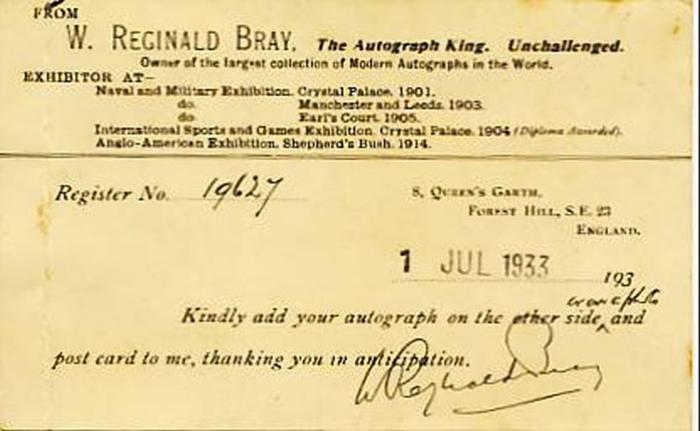 FROM
W. REGINALD BRAY, The Autograph King. Unchallenged.
Owner of the largest collection of Modern Autographs in the World.
EXHIBITOR AT—
Naval and Military Exhibition, Crystal Palace, 1901.
do. Manchester and Leeds, 1903.
do. Earl's Court, 1905.
International Sports and Games Exhibition, Crystal Palace, 1904 (Diploma Awarded).
Anglo-American Exhibition, Shepherd's Bush, 1914.
Register No. 19627
8, QUEEN'S GARTH,
FOREST HILL, S.E. 23
ENGLAND.
1 JUL 1933 193
Kindly add your autograph on the other side and
post card to me, thanking you in anticipation.
W Reginald Bray